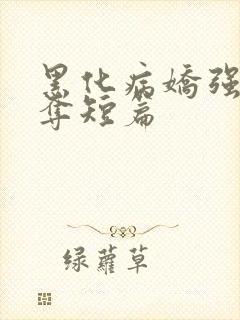 黑化病嬌强
奪短篇
绿蘿草